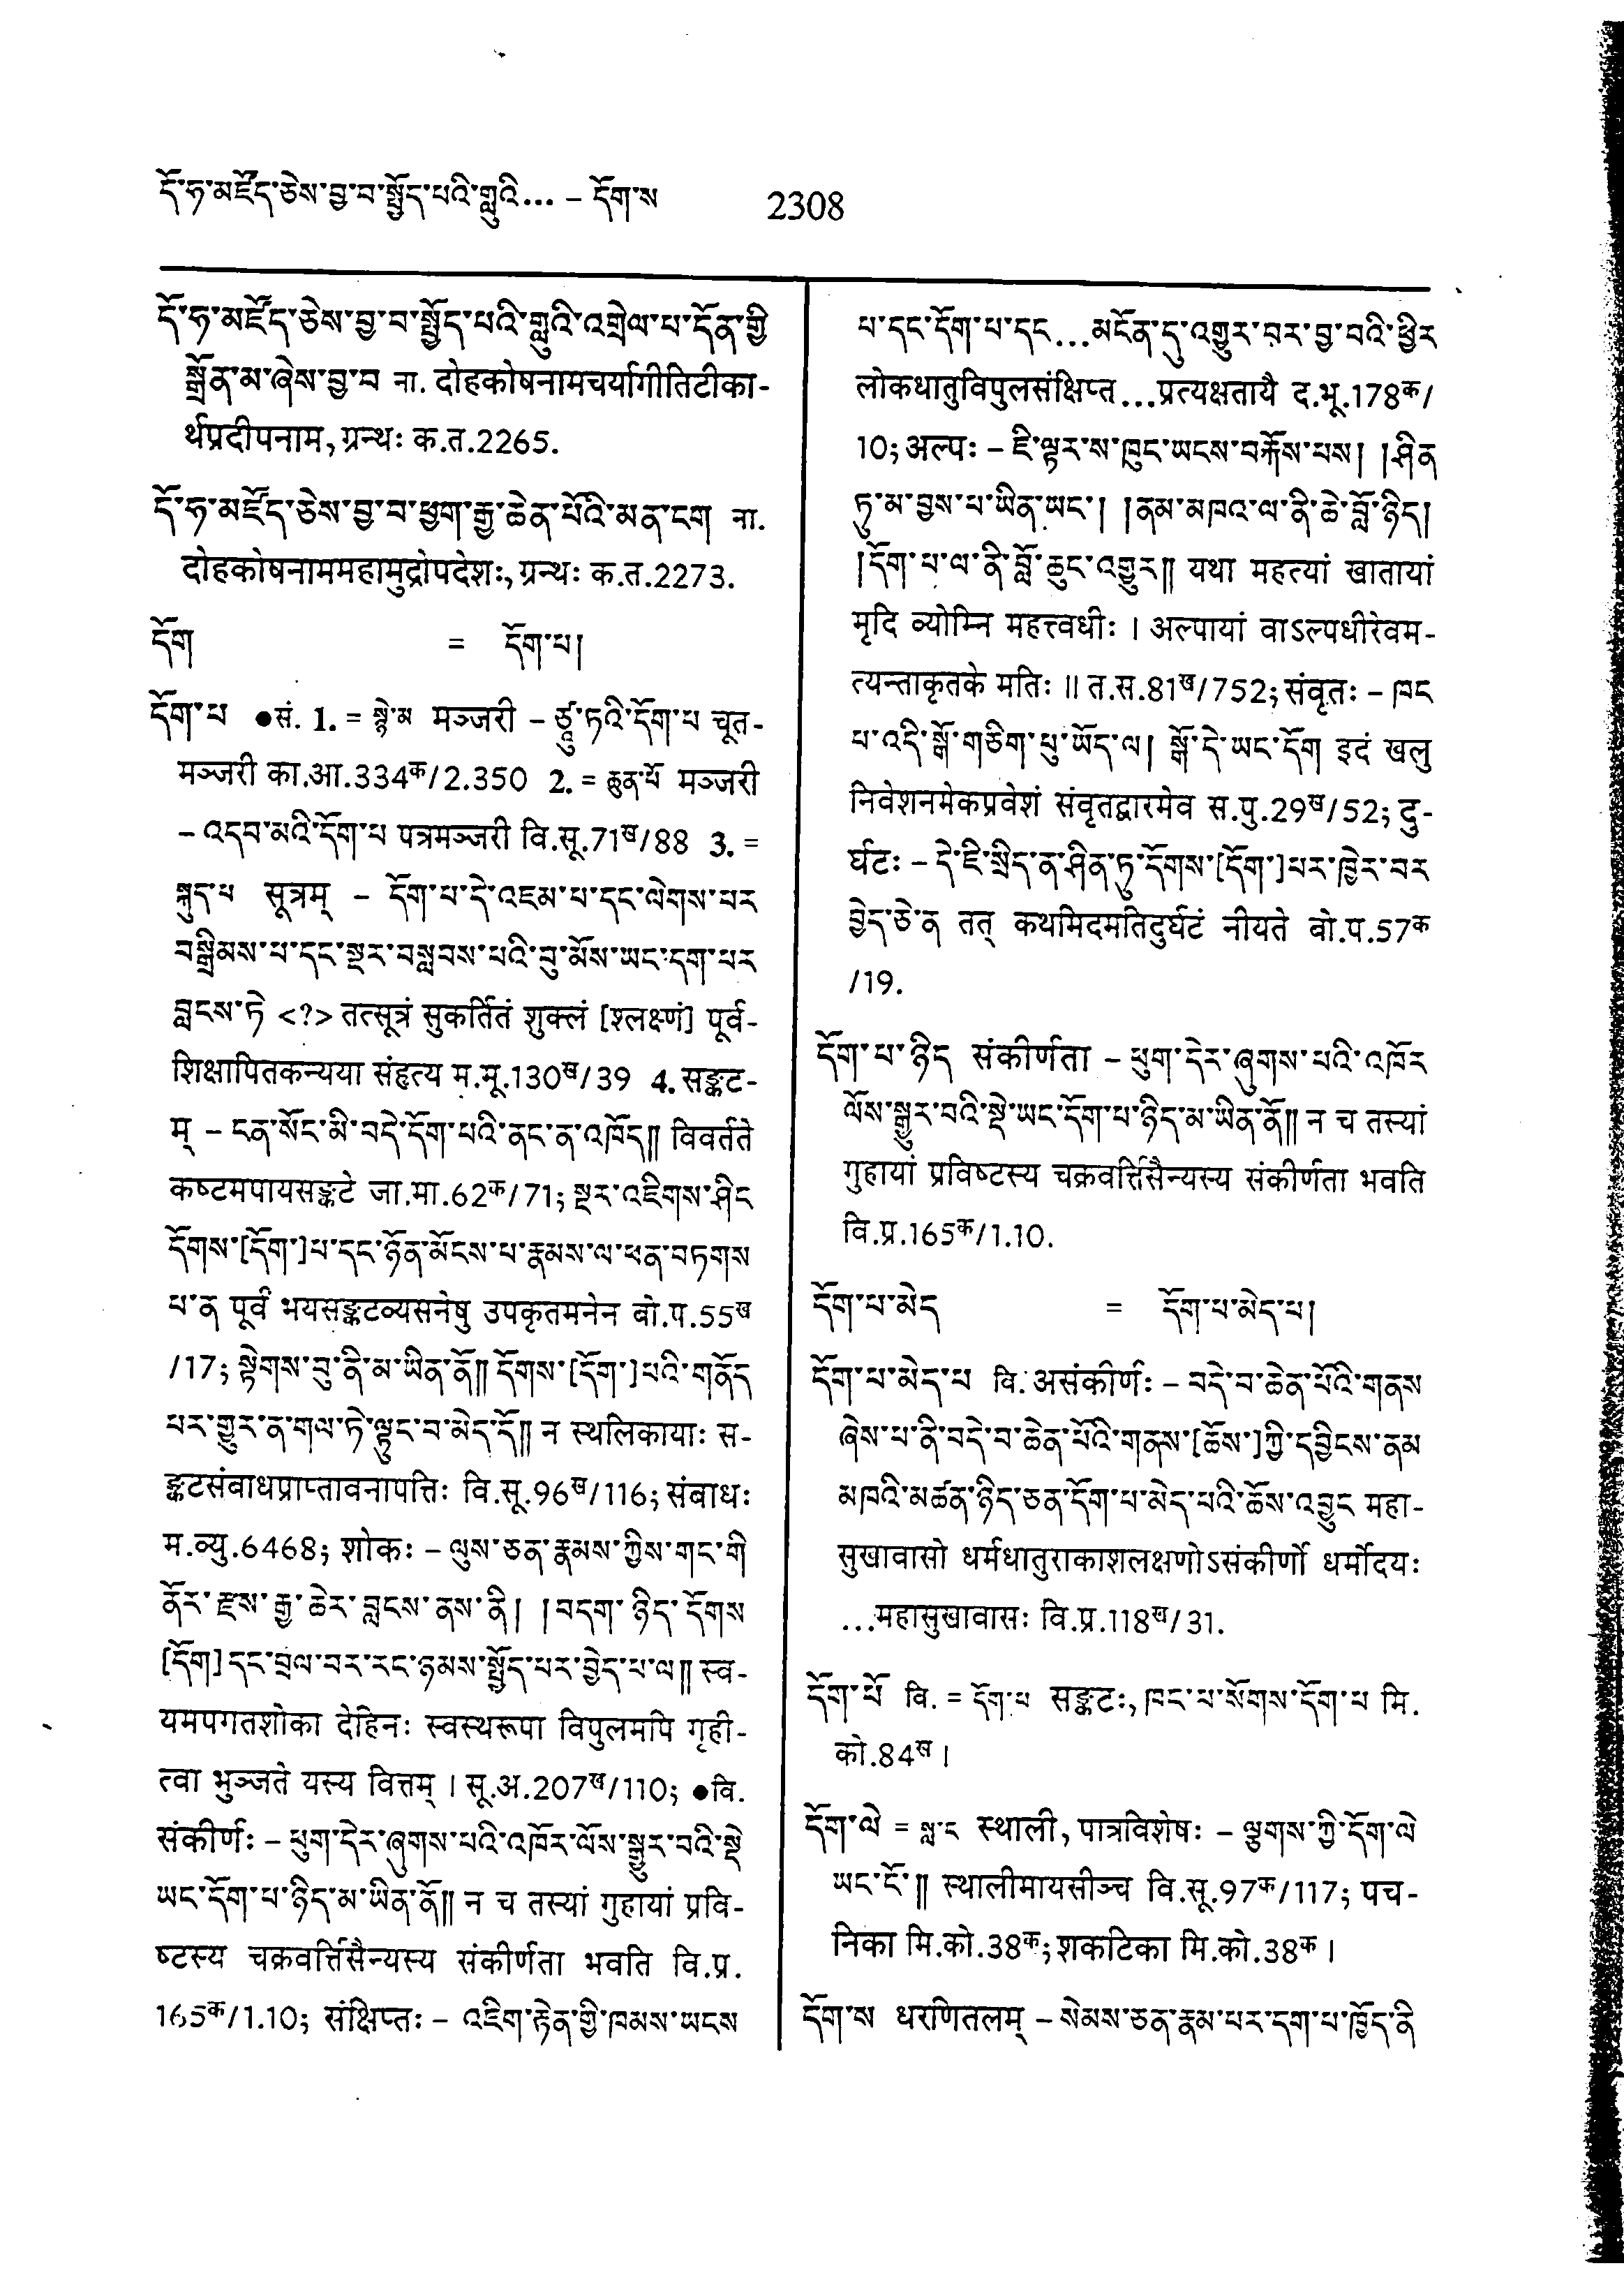 དོ་ཧ་མཛོད་ཅེས་བྱ་བ་སྤྱོད་པའི་གླུའི... – དོག་ས 2308
དོ་ཧ་མཛོད་ཅེས་བྱ་བ་སྤྱོད་པའི་གླུའི་འགྲེལ་པ་དོན་གྱི
སྒྲོན་མ་ཞེས་བྱ་བ ना. दोहकोषनामचर्यागीतिटीका-
र्थप्रदीपनाम, ग्रन्थः क.त.2265.
དོ་ཧ་མཛོད་ཅེས་བྱ་བ་ཕྱག་རྒྱ་ཆེན་པོའི་མན་ངག ना.
दोहकोषनाममहामुद्रोपदेशः, ग्रन्थः क.त.2273.
དོག = དོག་པ།
དོག་པ ●सं. 1. = སྙེ་མ मञ्जरी – ཙཱུ་ཏའི་དོག་པ चूत-
मञ्जरी का.आ.334क/2.350 2. = ཆུན་པོ मञ्जरी
– འདབ་མའི་དོག་པ पत्रमञ्जरी वि.सू.71ख/88 3. =
སྐུད་པ सूत्रम् – དོག་པ་དེ་འཇམ་པ་དང་ལེགས་པར
བསྒྲིམས་པ་དང་སྔར་བསླབས་པའི་བུ་མོས་ཡང་དག་པར
བླངས་ཏེ <?> तत्सूत्रं सुकर्तितं शुक्लं [श्लक्ष्णं] पूर्व-
शिक्षापितकन्यया संहृत्य म.मू.130ख/39 4. सङ्कट-
म् – ངན་སོང་མི་བདེ་དོག་པའི་ནང་ན་འཁོད།། विवर्तते
कष्टमपायसङ्कटे जा.मा.62क/71; སྔར་འཇིགས་ཤིང
དོགས་[དོག་]པ་དང་ཉོན་མོངས་པ་རྣམས་ལ་ཕན་བཏགས
པ་ན पूर्वं भयसङ्कटव्यसनेषु उपकृतमनेन बो.प.55ख
/17; སྟེགས་བུ་ནི་མ་ཡིན་ནོ།། དོགས་[དོག་]པའི་གནོད
པར་གྱུར་ན་གལ་ཏེ་ལྟུང་བ་མེད་དོ།། न स्थलिकायाः स-
ङ्कटसंबाधप्राप्तावनापत्तिः वि.सू.96ख/116; संबाधः
म.व्यु.6468; शोकः – ལུས་ཅན་རྣམས་ཀྱིས་གང་གི
ནོར་རྫས་རྒྱ་ཆེར་བླངས་ནས་ནི། །བདག་ཉིད་དོགས
[དོག] དང་བྲལ་བར་རང་ཉམས་སྤྱོད་པར་བྱེད་པ་ལ།། स्व-
यमपगतशोका देहिनः स्वस्थरूपा विपुलमपि गृही-
त्वा भुञ्जते यस्य वित्तम् । सू.अ.207ख/110; ●वि.
संकीर्णः – ཕུག་དེར་ཞུགས་པའི་འཁོར་ལོས་སྒྱུར་བའི་སྡེ
ཡང་དོག་པ་ཉིད་མ་ཡིན་ནོ།། न च तस्यां गुहायां प्रवि-
ष्टस्य चक्रवर्त्तिसैन्यस्य संकीर्णता भवति वि.प्र.
165क/1.10; संक्षिप्तः – འཇིག་རྟེན་གྱི་ཁམས་ཡངས
པ་དང་དོག་པ་དང...མངོན་དུ་འགྱུར་བར་བྱ་བའི་ཕྱིར
लोकधातुविपुलसंक्षिप्त...प्रत्यक्षतायै द.भू.178क/
10; अल्पः – ཇི་ལྟར་ས་ཁུང་ཡངས་བརྐོས་པས། །ཤིན
ཏུ་མ་བྱས་པ་ཡིན་ཡང་། །ནམ་མཁའ་ལ་ནི་ཆེ་བློ་ཉིད།
།དོག་པ་ལ་ནི་བློ་ཆུང་འགྱུར།། यथा महत्यां खातायां
मृदि व्योम्नि महत्त्वधीः । अल्पायां वाऽल्पधीरेवम-
त्यन्ताकृतके मतिः ॥ त.स.81ख/752; संवृतः – ཁང
པ་འདི་སྒོ་གཅིག་པུ་ཡོད་ལ། སྒོ་དེ་ཡང་དོག इदं खलु
निवेशनमेकप्रवेशं संवृतद्वारमेव स.पु.29ख/52; दु-
र्घटः – དེ་ཇི་སྲིད་ན་ཤིན་ཏུ་དོགས་[དོག་]པར་ཁྱེར་བར
བྱེད་ཅེ་ན तत् कथमिदमतिदुर्घटं नीयते बो.प.57क
/19.
དོག་པ་ཉིད संकीर्णता – ཕུག་དེར་ཞུགས་པའི་འཁོར
ལོས་སྒྱུར་བའི་སྡེ་ཡང་དོག་པ་ཉིད་མ་ཡིན་ནོ།། न च तस्यां
गुहायां प्रविष्टस्य चक्रवर्त्तिसैन्यस्य संकीर्णता भवति
वि.प्र.165क/1.10.
དོག་པ་མེད = དོག་པ་མེད་པ།
དོག་པ་མེད་པ वि. असंकीर्णः – བདེ་བ་ཆེན་པོའི་གནས
ཞེས་པ་ནི་བདེ་བ་ཆེན་པོའི་གནས་[ཆོས་]ཀྱི་དབྱིངས་ནམ
མཁའི་མཚན་ཉིད་ཅན་དོག་པ་མེད་པའི་ཆོས་འབྱུང महा-
सुखावासो धर्मधातुराकाशलक्षणोऽसंकीर्णो धर्मोदयः
...महासुखावासः वि.प्र.118ख/31.
དོག་པོ वि. = དོག་པ सङ्कटः, ཁང་པ་སོགས་དོག་པ मि.
को.84ख ।
དོག་ལེ = སླ་ང स्थाली, पात्रविशेषः – ལྕགས་ཀྱི་དོག་ལེ
ཡང་ངོ་།། स्थालीमायसीञ्च वि.सू.97क/117; पच-
निका मि.को.38क; शकटिका मि.को.38क ।
དོག་ས धरणितलम् – སེམས་ཅན་རྣམ་པར་དག་པ་ཁྱོད་ནི